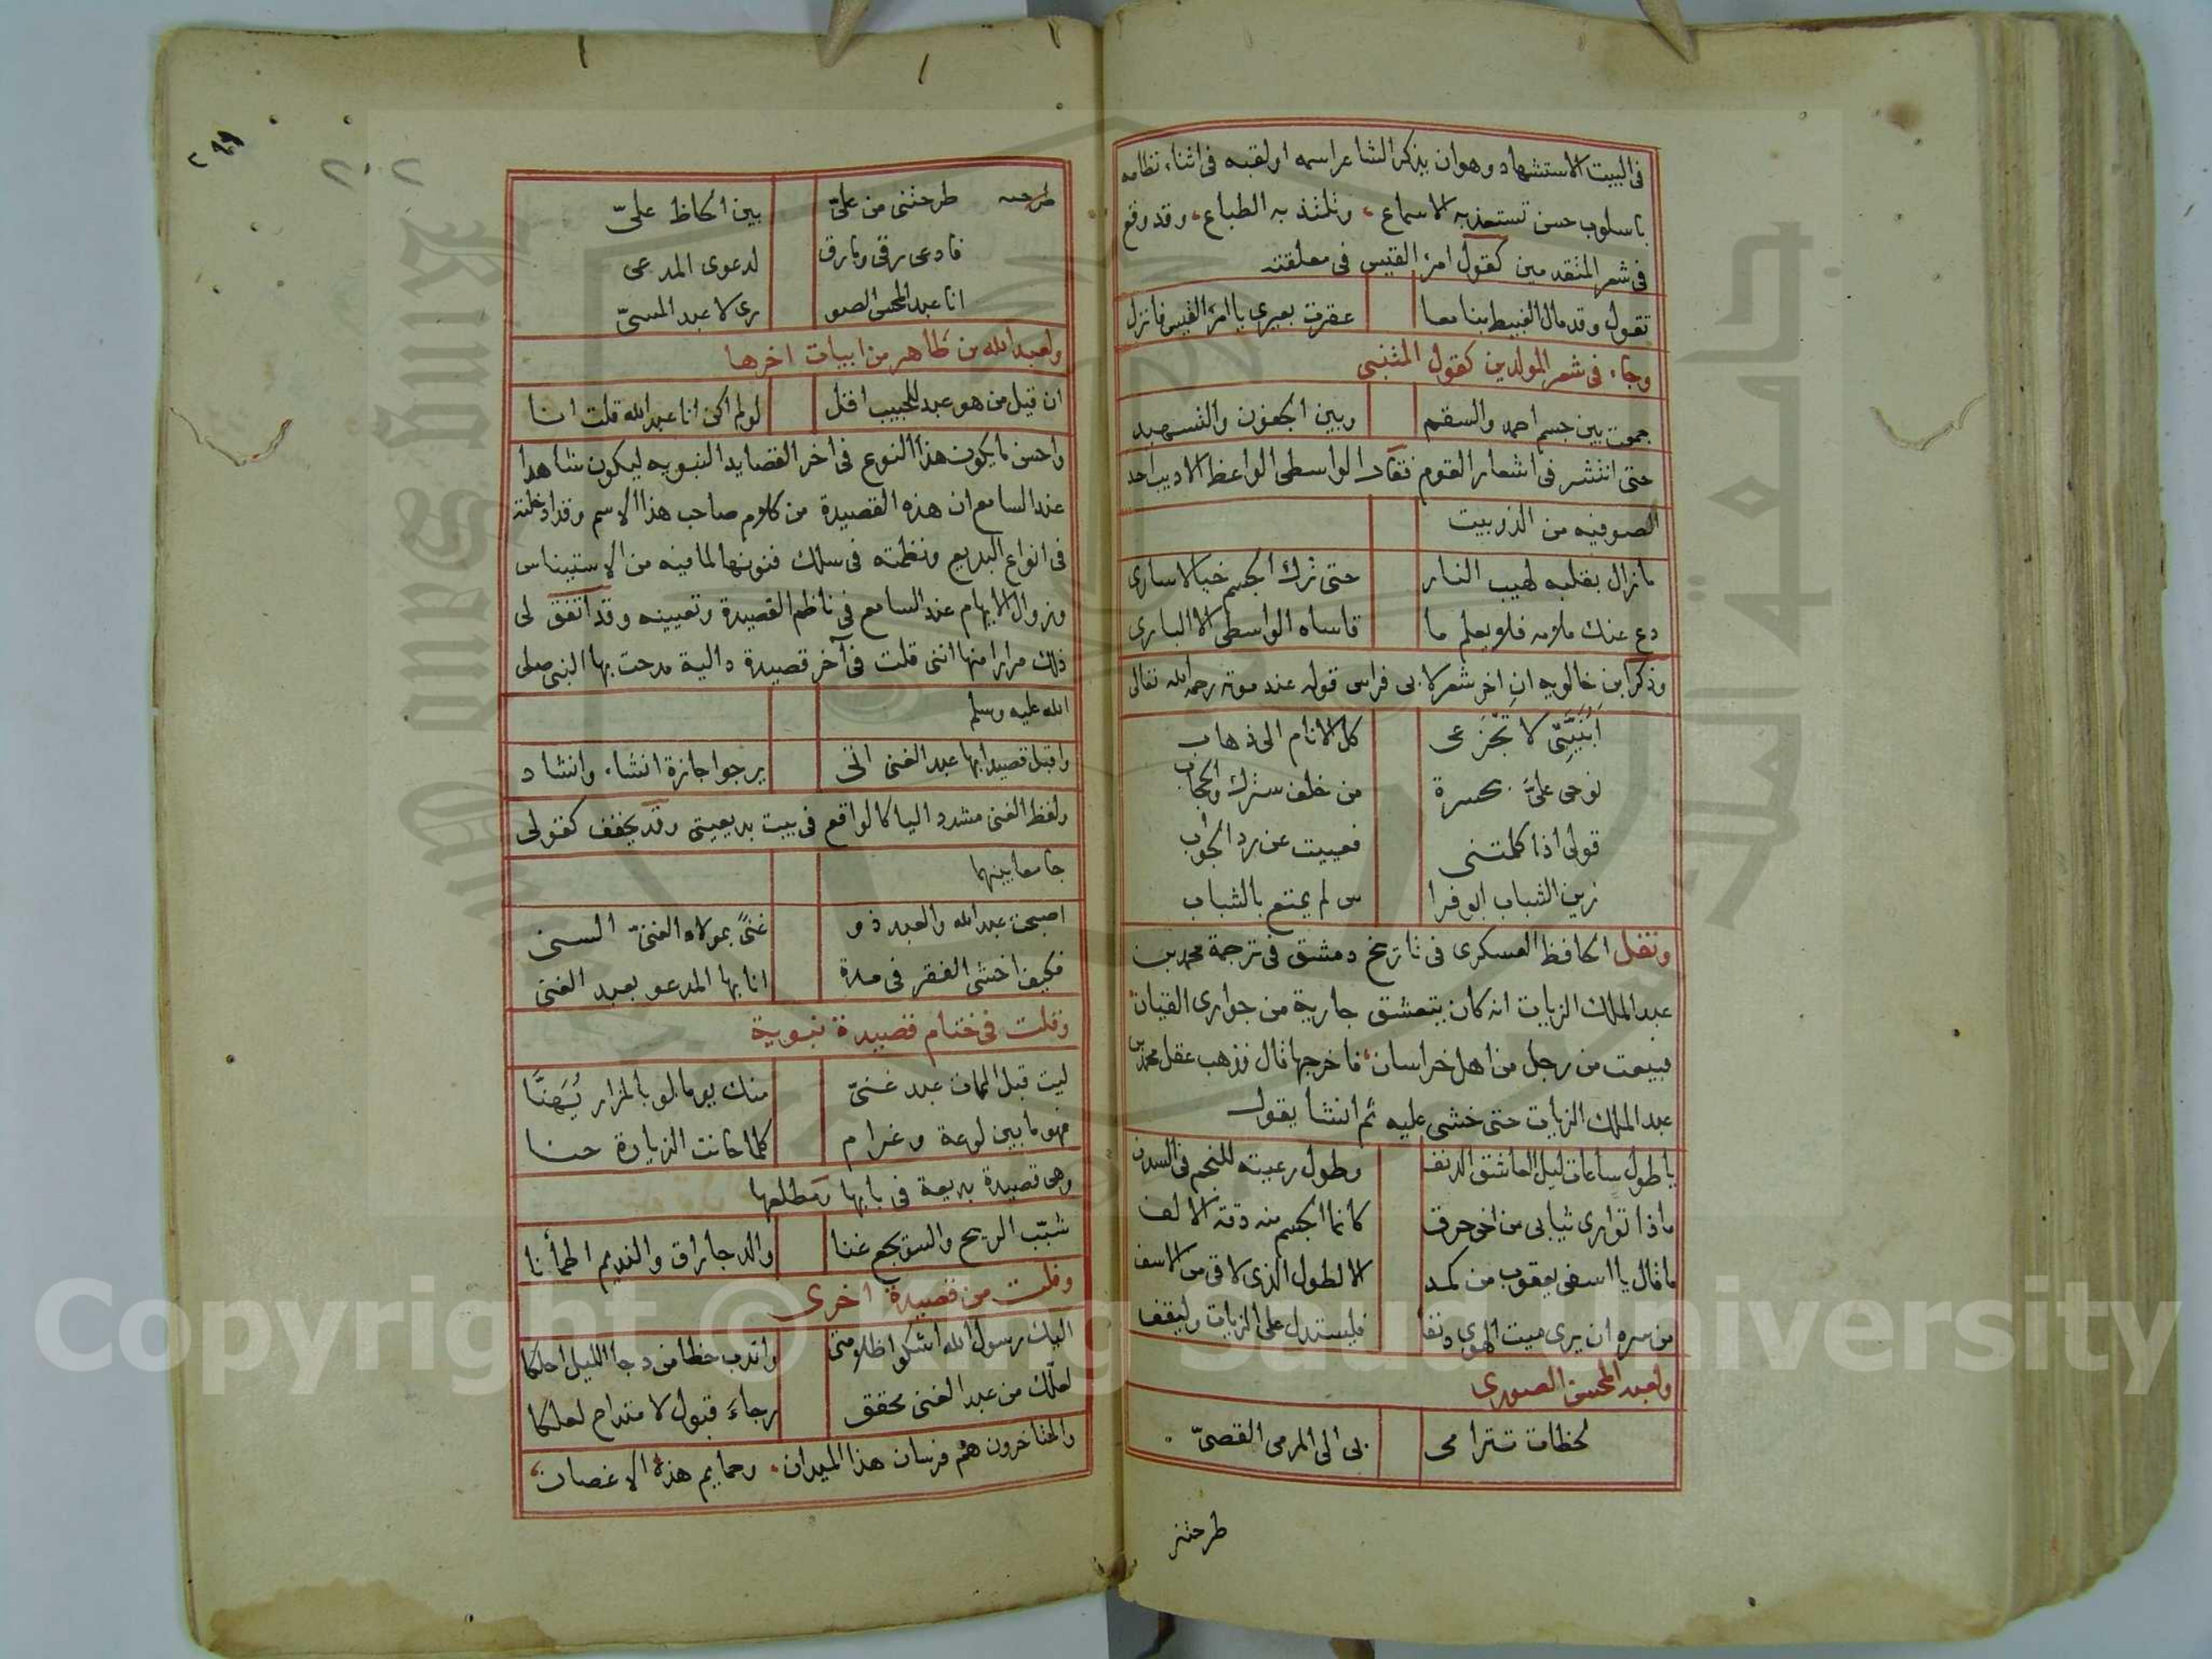 في البيت الاستشهاد وهو ان يذكر الشاعر اسمه او لقبه في اثناء نظامه
باسلوب حسن تستعذبه الاسماع، وتلتذ به الطباع، وقد وقع
في شعر المتقدمين كقول امرء القيس في معلقته
تقول وقد مال الغبيط بنا معا عقرت بعيري يا امرء القيس فانزل
وجاء في شعر المولدين كقول المتنبي
جمعت بين جسم احمد والسقم وبين الجفون والتسهيد
حتى انتشر في اشعار القوم فقال الواسطي الواعظ الاديب احد
الصوفيه من الذوبيت
مازال بقلبه لهيب النار حتى ترك الجسم خيالا ساري
دع عنك ملامه فلا يعلم ما قاساه الواسطي الا الباري
وذكر ابن خالويه ان اخر شعر لابي فراس قوله عند موته رحمه الله تعالى
أبنيتي لا تجزعي كل الانام الى ذهاب
نوحي عليّ بحسرة من خلف سترك والحجاب
قولي اذا كلمتني فعييت عن رد الجواب
زين الشباب ابو فرا س لم يمتع بالشباب
ونقل الحافظ العسكري في تاريخ دمشق في ترجمة محمد بن
عبد الملك الزيات انه كان يتعشق جارية من جواري القيان
فبيعت من رجل من اهل خراسان، فاخرجها قال فذهب عقل محمد بن
عبد الملك الزيات حتى خشي عليه ثم انشا يقول
يا طول ساعات ليل العاشق الدنف وطول رعيته للنجم في السدف
ماذا تواري ثيابي من اخي حرق كانما الجسم منه دقة الالف
ما قال يا اسفى يعقوب من كمد الا لطول الذي لاقى من الاسف
من سره ان يرى ميت الهوى دنفا فليستدل على الزيات وليقف
ولعبد المحسن الصوري
لحظات تترامى بي الى المرمى القصيّ
طرحتني
٢٠٢
طرحته طرحتني من عليّ بين الحاظ عليّ
فادعى رقي وما رق لدعوى المدعي
انا عبد المحسن الصو ري لا عبد المسيّ
ولعبد الله بن طاهر من ابيات اخرها
ان قيل من هو عبد للحبيب اقل لو لم اكن انا عبد الله قلت انا
واحسن ما يكون هذا النوع في اخر القصايد النبويه ليكون شاهدا
عند السامع ان هذه القصيدة من كلام صاحب هذا الاسم وقد ادخلته
في انواع البديع ونظمته في سلك فنونها لما فيه من الاستيناس
وزوال الابهام عند السامع في ناظم القصيدة وتعيينه وقد اتفق لي
ذلك مرارا منها انني قلت في آخر قصيدة دالية مدحت بها النبي صلى
الله عليه وسلم
واقبل قصيدا بها عبد الغني اتى يرجو اجازة انشاء وانشاد
ولفظ الغني مشدد اليا كالواقع في بيت بديعيتي وقد يخفف كقولي
جامعا بينهما
اصبحت عبد الله والعبد ذو غنًى بمولاه الغنيّ السني
فكيف اخشى الفقر في مدة انا بها المدعو بعبد الغني
وقلت في ختام قصيدة نبوية
ليت قبل الممات عبد غنيّ منك يوما لو بالمزار يُهَنَّا
فهو ما بين لوعة وغرام كلما حانت الزيارة حنا
وهي قصيدة بديعة في بابها ومطلعها
شبّب الريح والسويجع غنا والدجا راق والنديم اطمأنا
وقلت من قصيدة اخرى
اليك رسول الله اشكو ظلامتي واندب حظا من دجا الليل احلكا
لعلّك من عبد الغني محقق رجاءَ قبول لامتداح لعلكا
والمتاخرون هم فرسان هذا الميدان، وحمايم هذه الاغصان،
Copyright © King Saud University